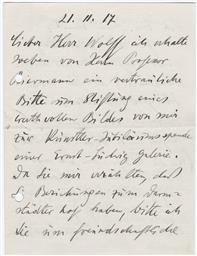 21. 11. 17
Lieber Herr Wolff ich erhalte
soeben von Herrn Professor
Biermann ein vertrauliche
Bitte um Stiftung eines
wertvollen Bildes von mir
zur Künstler-Jubiläumsspende
einer Ernst-Ludwig galerie.
Da Sie mir erzählten, daß
Beziehungen zum Darm-
städter Hof haben, bitte ich
Sie um freundschaftliche